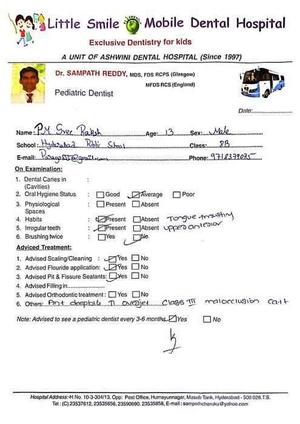 Little Smile Mobile Dental Hospital
Exclusive Dentistry for kids
A UNIT OF ASHWINI DENTAL HOSPITAL (Since 1997)
Dr. SAMPATH REDDY, MDS, FDS RCPS (Glasgow)
MFDS RCS (England)
Pediatric Dentist
Date:
Name: PM Sree Age: 13 Sex: Male
School: Hyderabad Public School Class: 8B
E-mail: Phone:
On Examination:
1. Dental Caries in :
(Cavities)
2. Oral Hygiene Status : Good Average Poor
3. Physiological : Present Absent
Spaces
4. Habits : Present Absent Tongue thrusting
5. Irregular teeth : Present Absent upper anterior
6. Brushing twice : Yes No
Adviced Treatment:
1. Advised Scaling/Cleaning : Yes No
2. Advised Flouride application: Yes No
3. Advised Pit & Fissure Sealants: Yes No
4. Advised Filling in
5. Advised Orthodontic treatment : Yes No
6. Others overjet class III malocclusion
Note: Advised to see a pediatric dentist every 3-6 months Yes No
Hospital Address: H No. 10-3-304/13, Opp: Post Office, Humayunnagar, Masab Tank, Hyderabad - 500 028 T.S.
Tel: (C) 23537612, 23535656, 23590690, 23535858, E-mail : sampathcheruku@yahoo.com